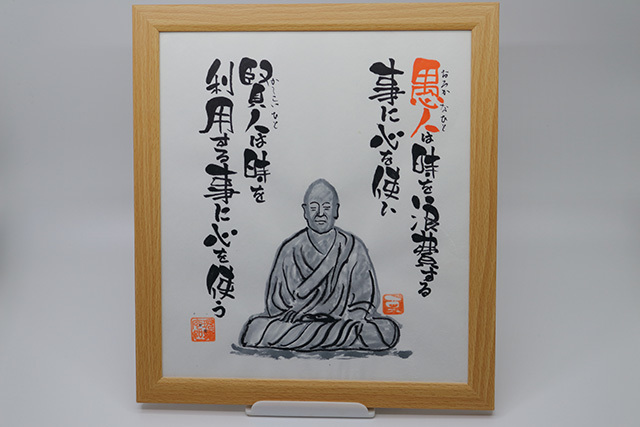 愚人は時を浪費する
おろかなひと
事に心を使い
賢人は時を
かしこいひと
利用する事に心を使う